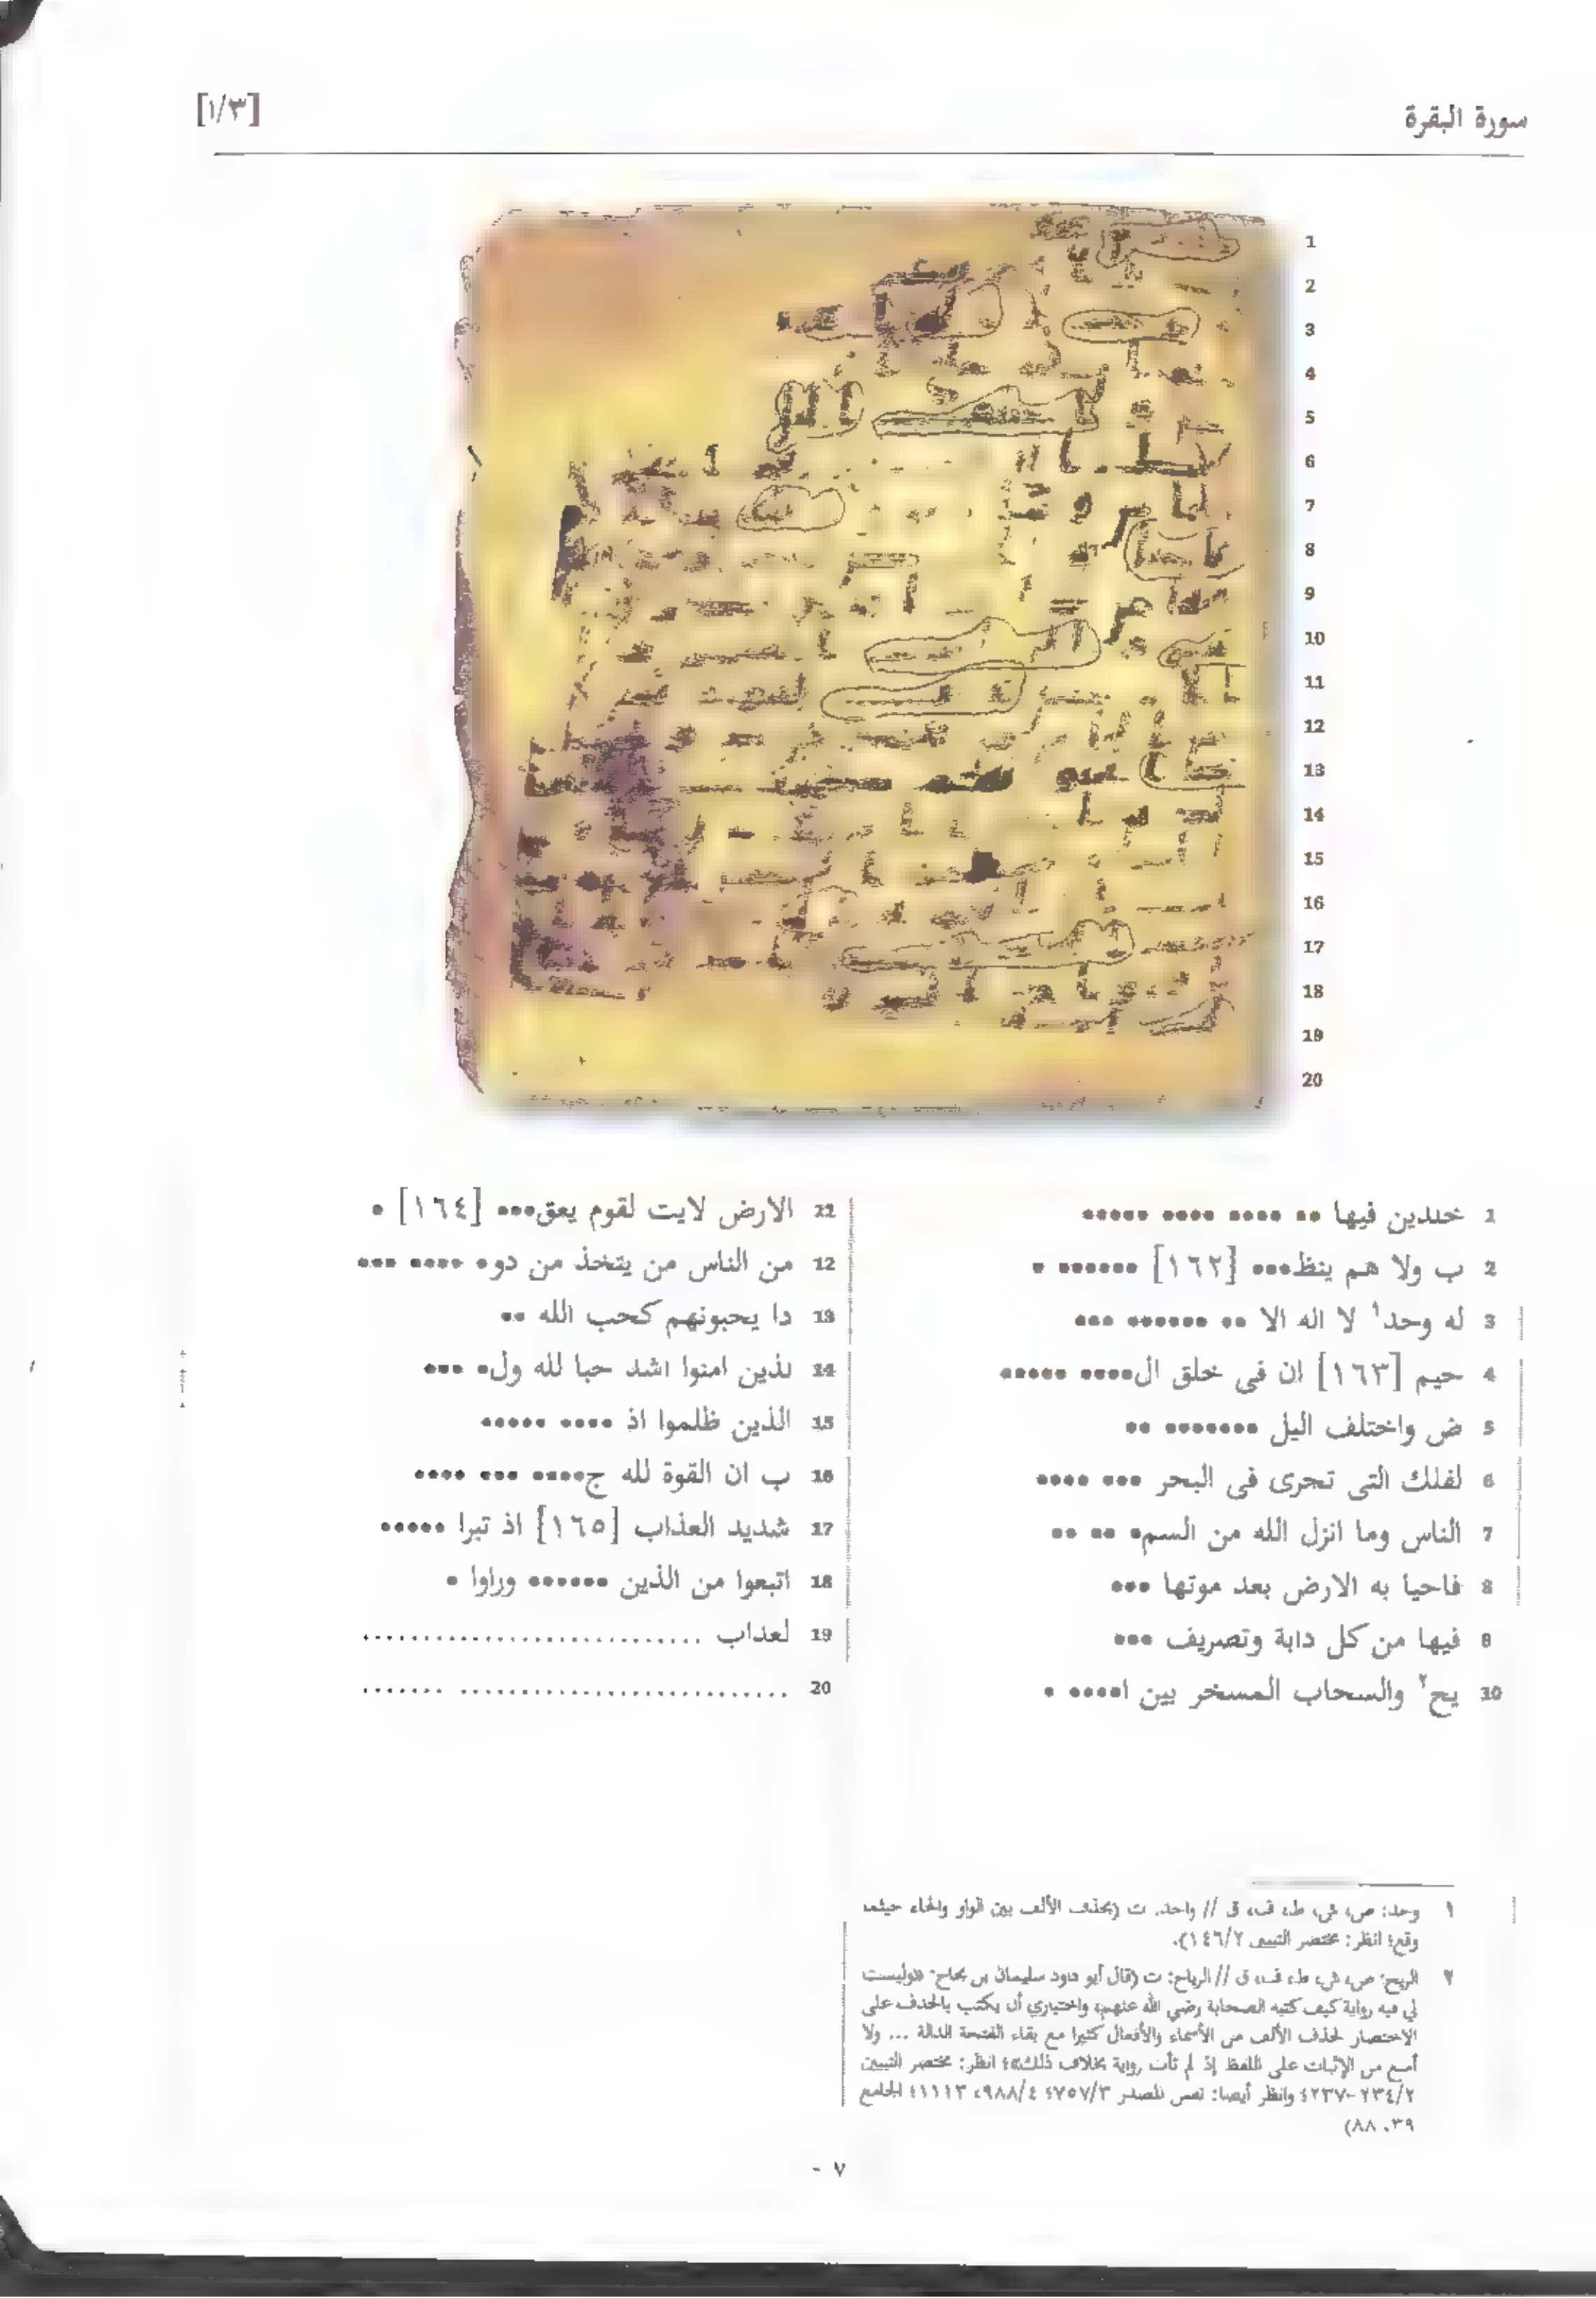 سورة البقرة
[١/٣]
1
2
3
4
5
6
7
8
9
10
11
12
13
14
15
16
17
18
19
20
1 خلدين فيها •• •••• •••• •••••
2 ب ولا هم ينظ••• [١٦٢] •••••• •
3 له وحد١ لا اله الا •• •••••• •••
4 حيم [١٦٣] ان فى خلق ال•••• •••••
5 ض واختلف اليل ••••••• ••
6 لفلك التى تجرى فى البحر ••• ••••
7 الناس وما انزل الله من السم• •• ••
8 فاحيا به الارض بعد موتها •••
9 فيها من كل دابة وتصريف •••
10 يح٢ والسحاب المسخر بين ا•••• •
11 الارض لايت لقوم يعق••• [١٦٤] •
12 من الناس من يتخذ من دو• •••• •••
13 دا يحبونهم كحب الله ••
14 لذين امنوا اشد حبا لله ول• •••
15 الذين ظلموا اذ •••• •••••
16 ب ان القوة لله ج•••• ••• ••••
17 شديد العذاب [١٦٥] اذ تبرا •••••
18 اتبعوا من الذين •••••• وراوا •
19 لعداب ............................
20 ...................................
١ وحد: ص، ش، ط، ف، ق // واحد. ت (بحذف الألف بين الواو والحاء حيثما
وقع؛ انظر: مختصر التبيين ١٤٦/٢).
٢ الريح: ص، ش، ط، ف، ق // الرياح: ت (قال أبو داود سليمان بن نجاح: «وليست
لي فيه رواية كيف كتبه الصحابة رضي الله عنهم، واختياري أن يكتب بالحذف على
الاختصار لحذف الألف من الأسماء والأفعال كثيرا مع بقاء الفتحة الدالة ... ولا
أمنع من الإثبات على اللفظ إذ لم تأت رواية بخلاف ذلك»؛ انظر: مختصر التبيين
٢٣٤/٢-٢٣٧؛ وانظر أيضا: نفس المصدر ٧٥٧/٣؛ ٩٨٨/٤، ١١١٣؛ الجامع
٣٩، ٨٨)
٧ -